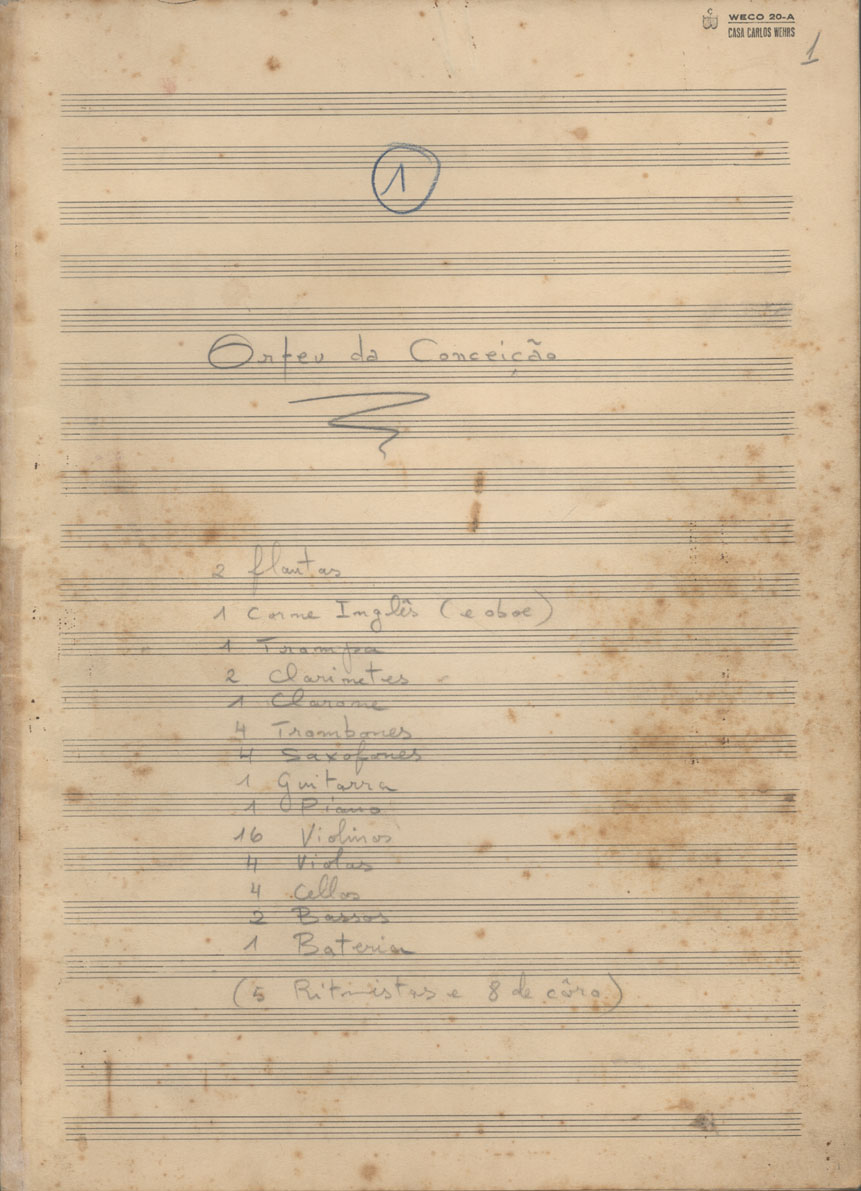 WECO 20-A
CASA CARLOS WEHRS
1
1
Orfeu da Conceição
2 flautas
1 Corne Inglês (e oboe)
1 Trompa
2 Clarinetes
1 Clarone
4 Trombones
4 Saxofones
1 Guitarra
1 Piano
16 Violinos
4 Violas
4 Cellos
2 Bassos
1 Bateria
(5 Ritmistas e 8 de côro)